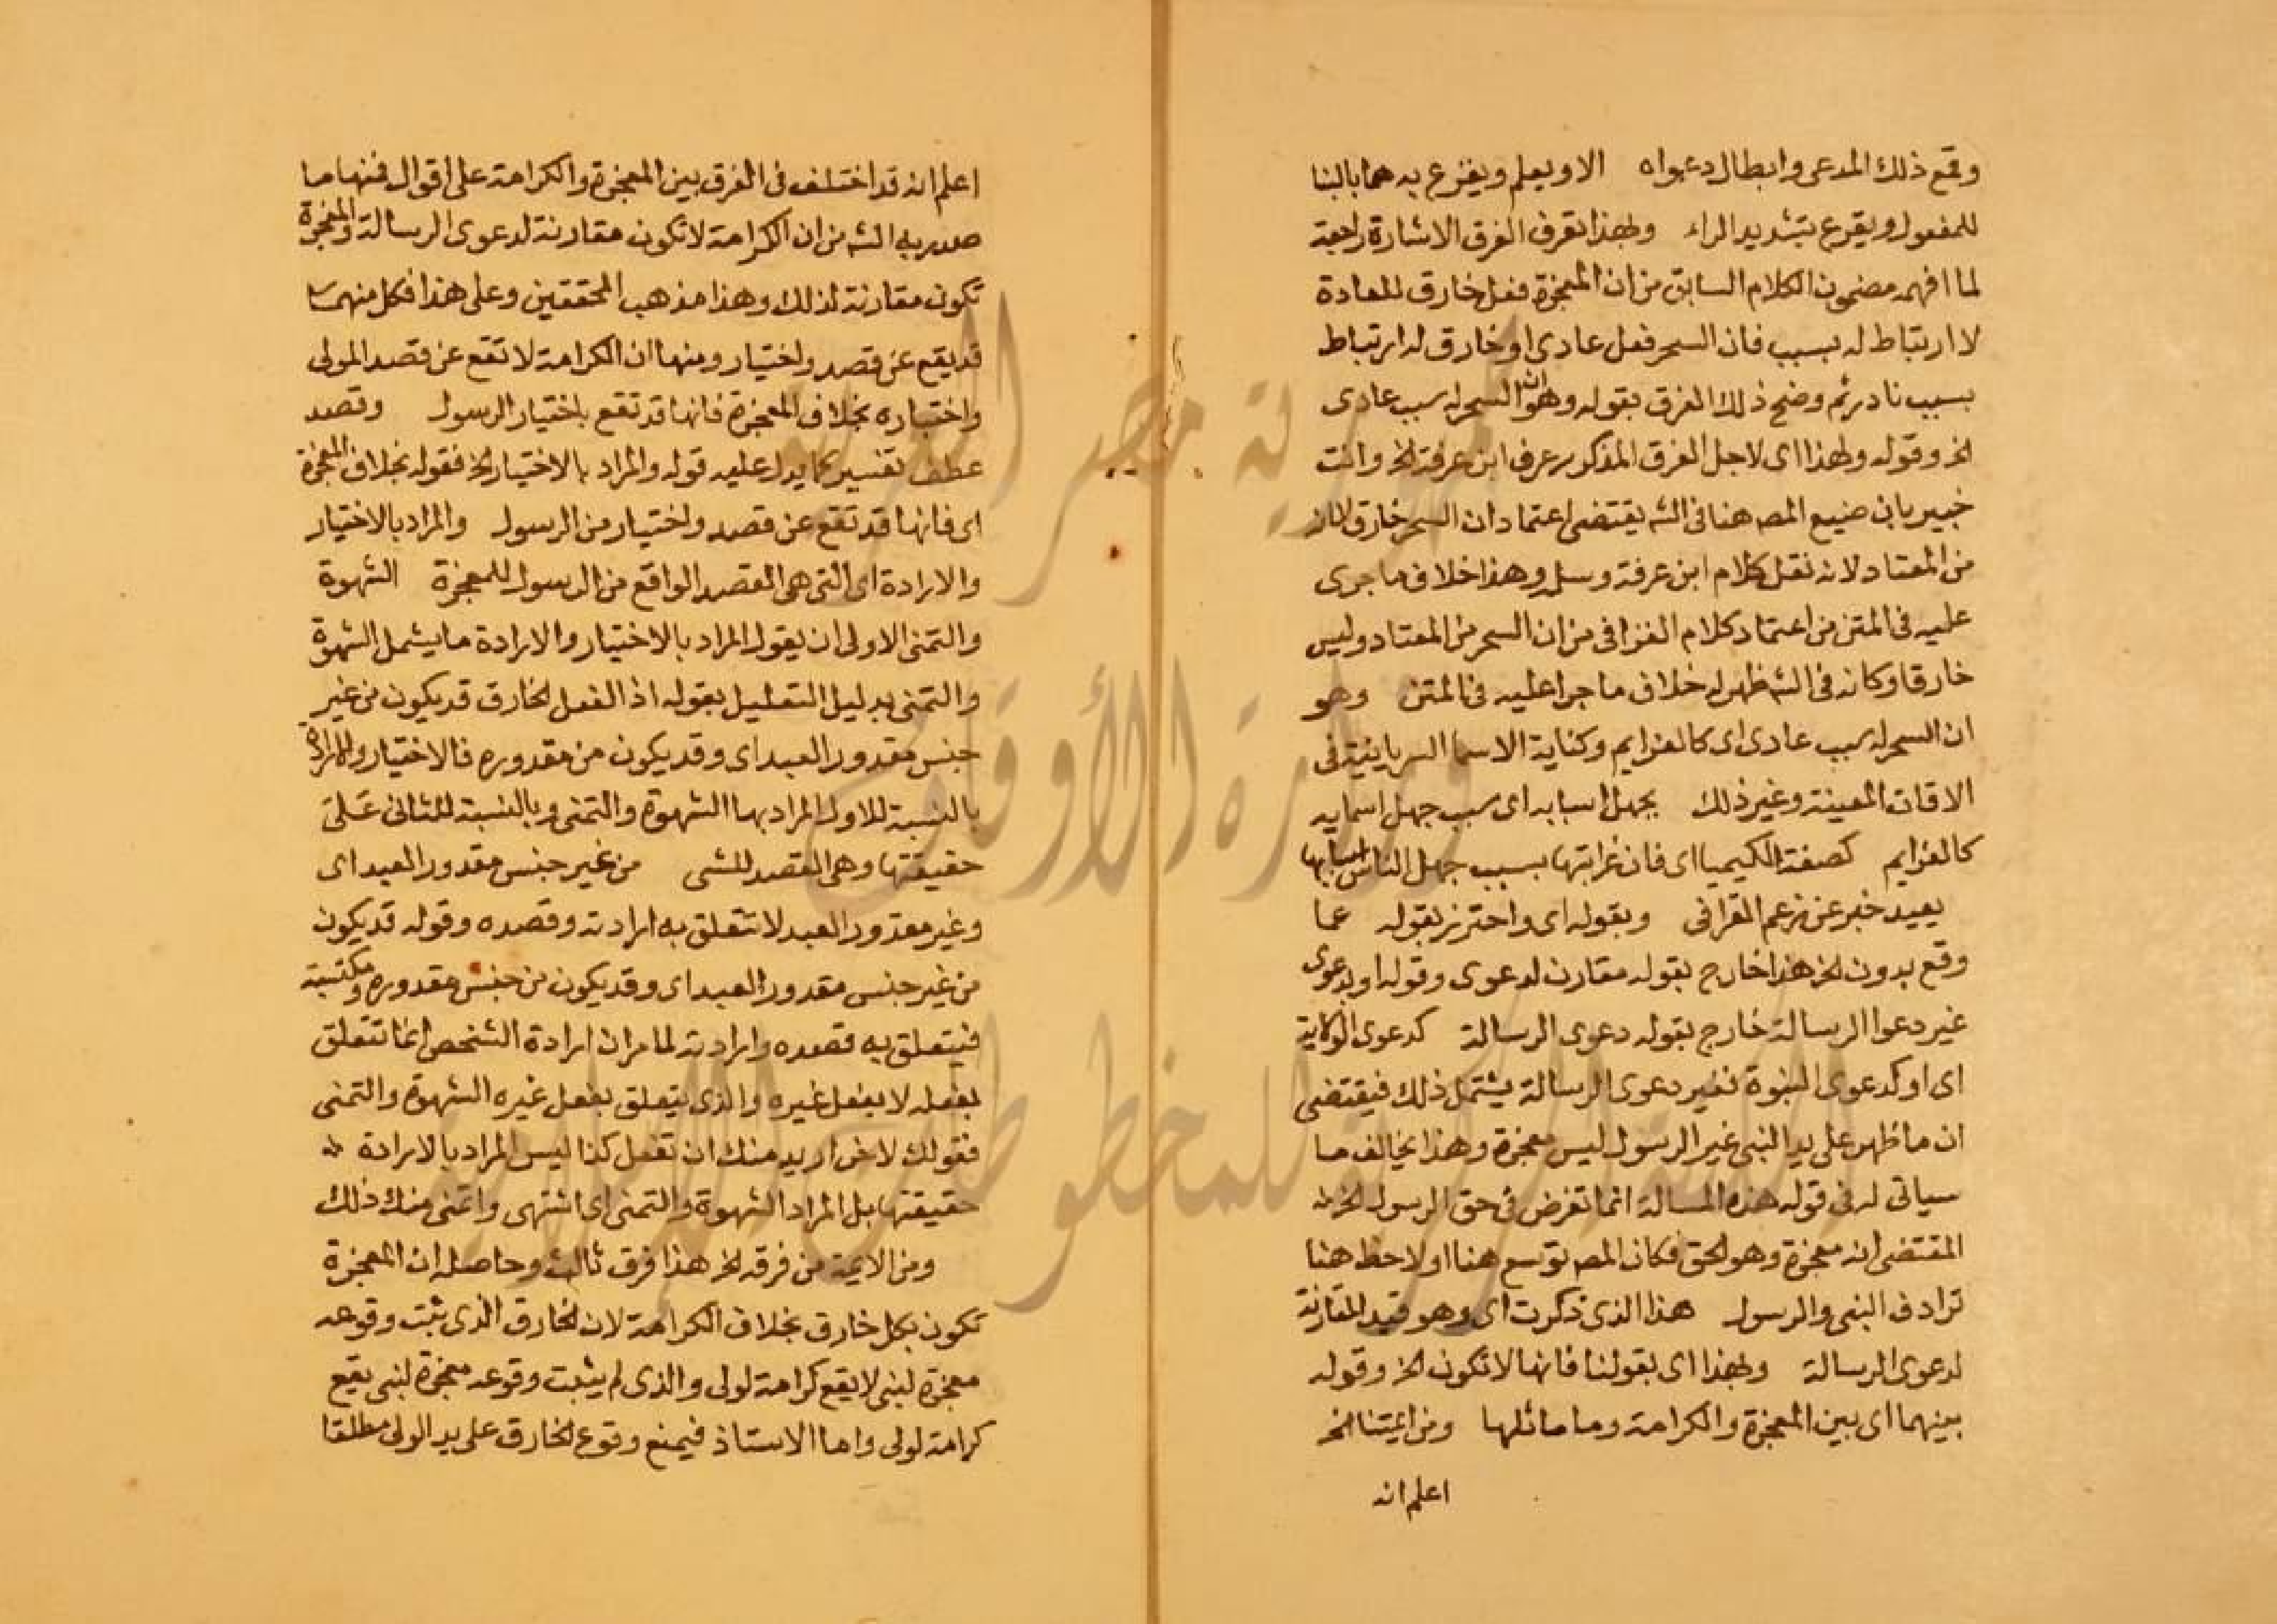 وقمع ذلك المدعى وابطال دعواه الا ويعلم ويفزع به هما بالبنا
للمفعول ويقرع بتشديد الراء ولهذا تعرف الفرق الاشارة راجعة
لما افهمه مضمون الكلام السابق من ان المعجزة فعل خارق للعادة
لا ارتباط له بسبب فان السحر فعل عادى او خارق له ارتباط
بسبب نادر ثم وضح ذلك الفرق بقوله وهو ان السحر له سبب عادى
الخ وقوله ولهذا اى لاجل الفرق المذكور عرف ابن عرفة الخ وانت
خبير بان صنيع المص هنا فى الشه يقتضى اعتماد ان السحر خارق لا ان
من المعتاد لانه نقل كلام ابن عرفة وسلمه وهذا خلاف ما جرى
عليه فى المتن من اعتماد كلام القرافى من ان السحر من المعتاد وليس
خارقا وكانه فى الشه ظهر له خلاف ما جرا عليه فى المتن وهو
ان السحر له سبب عادى اى كالعزايم وكتابة الاسما السريانية فى
الاقات المعينة وغير ذلك بجهل اسبابه اى بسبب جهل اسبابه
كالعزايم كصنعة الكيميا اى فان غرابتها بسبب جهل الناس اسبابها
بعيد خبر عن زعم القرافى وبقوله اى واحترز بقوله عما
وقع بدون الخ هذا خارج بقوله مقارن لدعوى وقوله او بدعوى
غير دعوا الرسالة خارج بقوله دعوى الرسالة كدعوى الولاية
اى او كدعوى النبوة فغير دعوى الرسالة يشتمل ذلك فيقتضى
ان ما ظهر على يد النبى غير الرسول ليس معجزة وهذا يخالف ما
سياتى له فى قوله هذه المسالة انما تفرض فى حق الرسول الخ
المقتضى انه معجزة وهو الحق فكان المص توسع هنا او لاحظ هنا
ترادف النبى والرسول هذا الذى ذكرت اى وهو قيد المقارنة
لدعوى الرسالة وبهذا اى بقولنا فانها لا تكون الخ وقوله
بينهما اى بين المعجزة والكرامة وما ماثلها ومن ايمتنا الخ
اعلم انه
اعلم انه قد اختلف فى الفرق بين المعجزة والكرامة على اقوال فمنها ما
صدر به الشه من ان الكرامة لا تكون مقارنة لدعوى الرسالة والمعجزة
تكون مقارنة لذلك وهذا مذهب المحققين وعلى هذا فكل منهما
قد يقع عن قصد واختيار ومنها ان الكرامة لا تقع عن قصد المولى
واختياره بخلاف المعجزة فانها قد تقع باختيار الرسول وقصد
عطف تفسير كما يدل عليه قوله والمراد بالاختيار الخ فقوله بخلاف المعجزة
اى فانها قد تقع عن قصد واختيار من الرسول والمراد بالاختيار
والارادة اى التى هى القصد الواقع من الرسول للمعجزة الشهوة
والتمنى الاولى ان يقول المراد بالاختيار والارادة ما يشمل الشهوة
والتمنى بدليل التعليل بقوله اذ الفعل الخارق قد يكون من غير
جنس مقدور العبد اى وقد يكون من مقدوره فالاختيار والارادة
بالنسبة للاول المراد بها الشهوة والتمنى وبالنسبة للثانى على
حقيقتها وهى القصد للشى من غير جنس مقدور العبد اى
وغير مقدور العبد لا تتعلق به ارادته وقصده وقوله قد يكون
من غير جنس مقدور العبد اى وقد يكون من جنس مقدوره ومكتسبه
فيتعلق به قصده وارادته لما مر ان ارادة الشخص انما تتعلق
بفعله لا بفعل غيره والذى يتعلق بفعل غيره الشهوة والتمنى
فقولك لاخر اريد منك ان تفعل كذا ليس المراد بالارادة
حقيقتها بل المراد الشهوة والتمنى اى اشتهى واتمنى منك ذلك
ومن الايمة من فرقه الخ هذا فرق ثالث وحاصله ان المعجزة
تكون بكل خارق بخلاف الكرامة لان الخارق الذى ثبت وقوعه
معجزة لنبى لا يقع كرامة لولى والذى لم يثبت وقوعه معجزة لنبى يقع
كرامة لولى واما الاستاذ فيمنع وقوع الخارق على يد الولى مطلقا